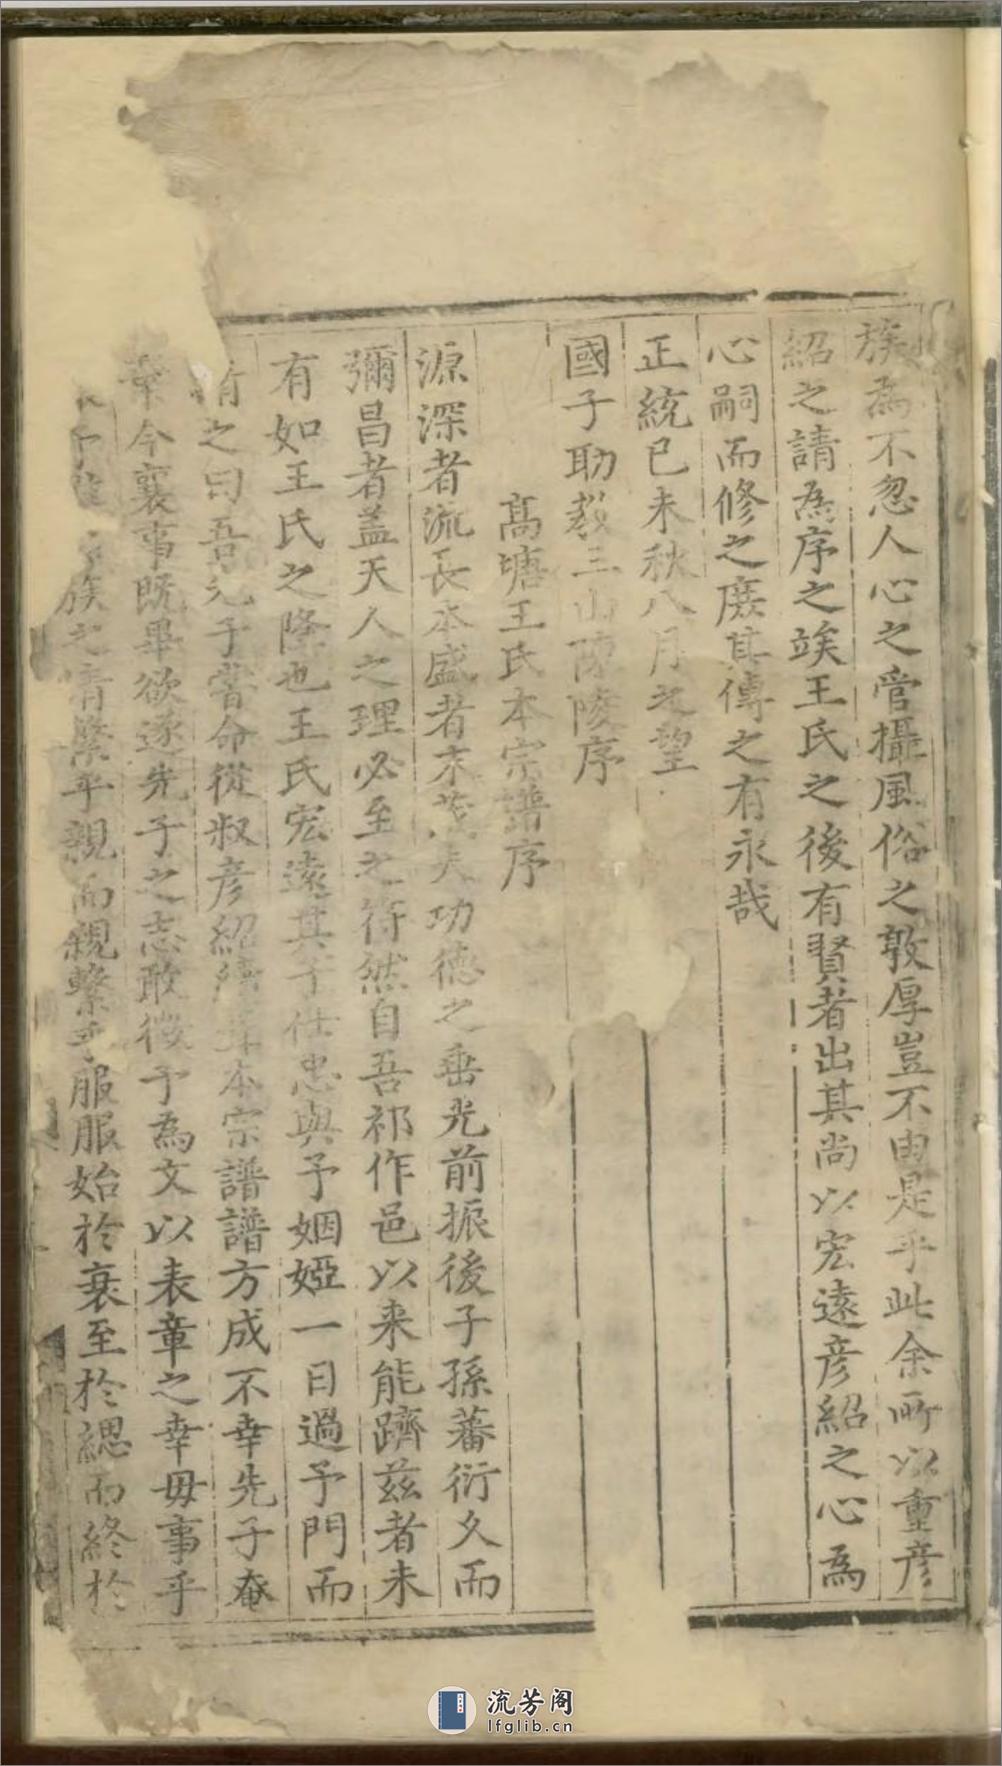 族為不忽人心之管攝風俗之敦厚豈不由是乎此余所以重彦
紹之請為序之竢王氏之後有賢者出其尚以宏遠彦紹之心為
心嗣而修之庻其傳之有永哉
正統已未秋八月之望
國子助教三山陳陵序
髙塘王氏本宗譜序
源深者流長本盛者末茂夫功德之垂光前振後子孫蕃衍久而
彌昌者盖天人之理必至之符然自吾祁作邑以来能躋兹者未
有如王氏之隆也王氏宏遠其子仕忠與予姻婭一日過予門而
請之曰吾先子嘗命從叔彦紹本宗譜譜方成不幸先子奄
棄今襄事既畢欲遂先子之志敢徴予為文以表章之幸毋事乎
族之情繫乎親而親繫乎服服始於衰至於緦而終於
流芳阁
lfglib.cn